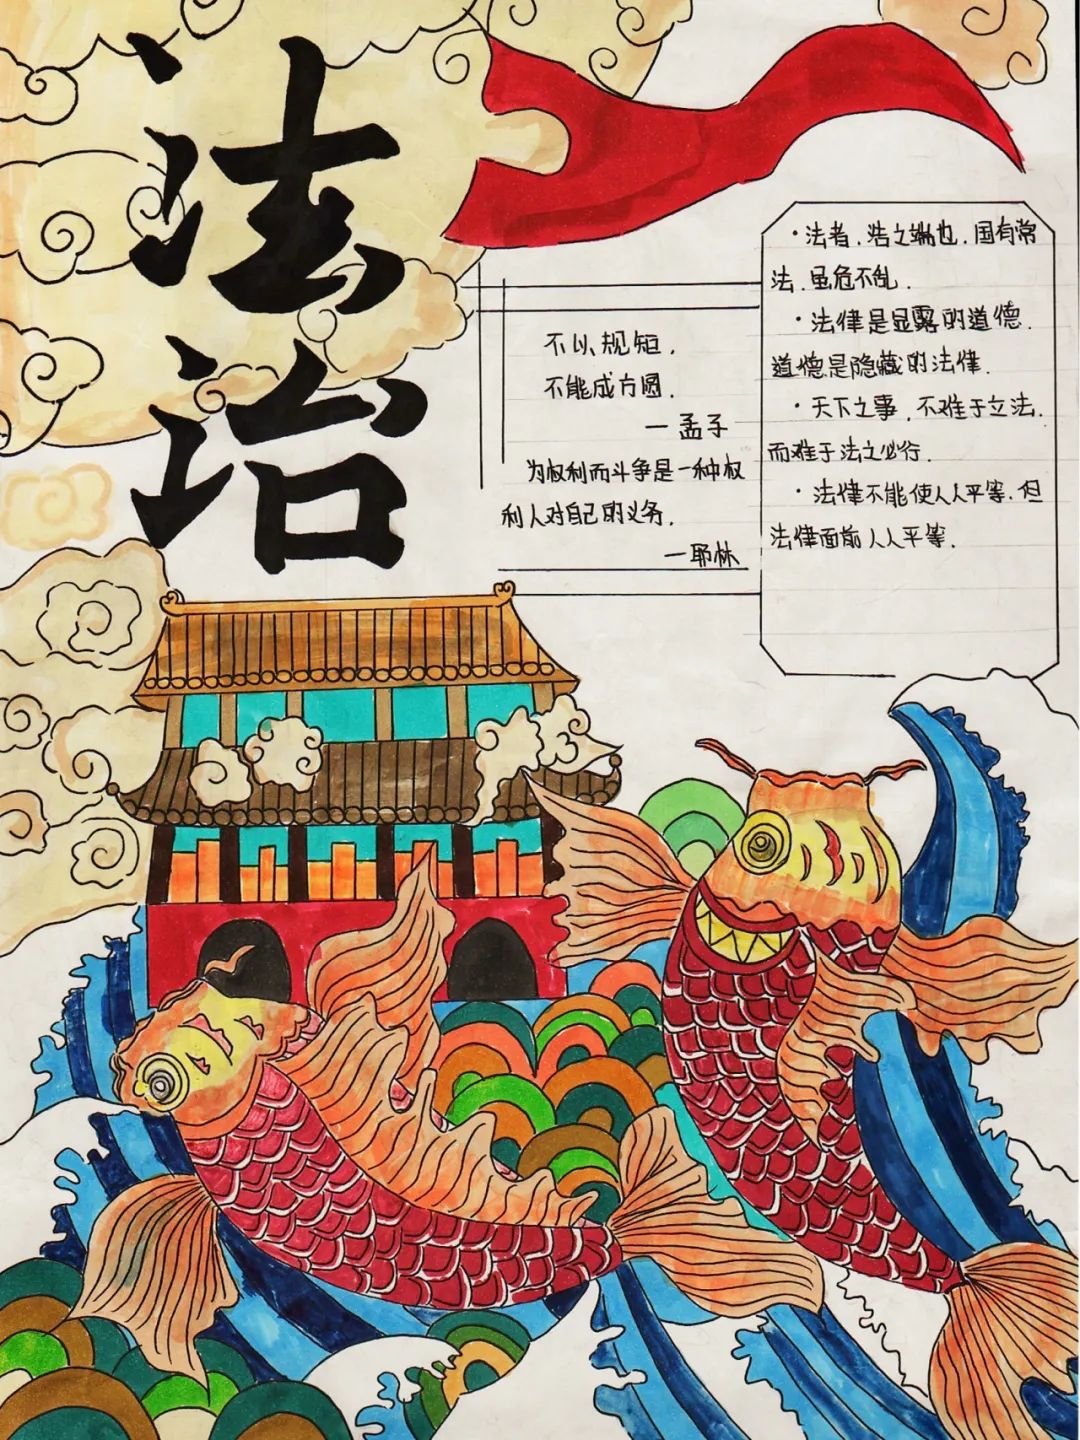 法
治
不以规短.
不能成方圆.
—孟子
为权利而斗争是一种权
利人对自己的义务.
—耶林
·法者.浩之端也.国有常
法.虽危不乱.
·法律是显露的道德.
道德是隐藏的法律.
·天下之事.不难于立法.
而难于法之必行.
·法律不能使人人平等.但
法律面前人人平等.